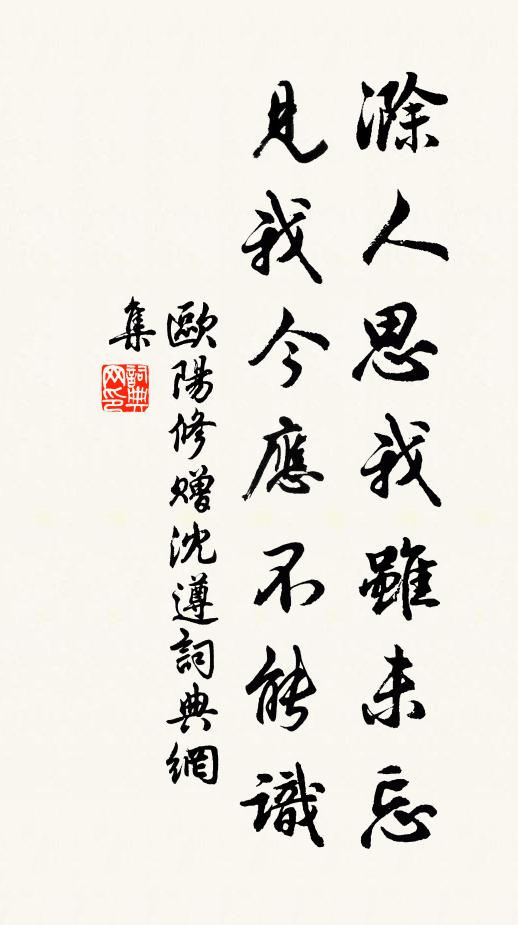 滁人思我雖未忘
見我今應不能識
歐陽修贈沈遵詞典網
集
詞典
网印